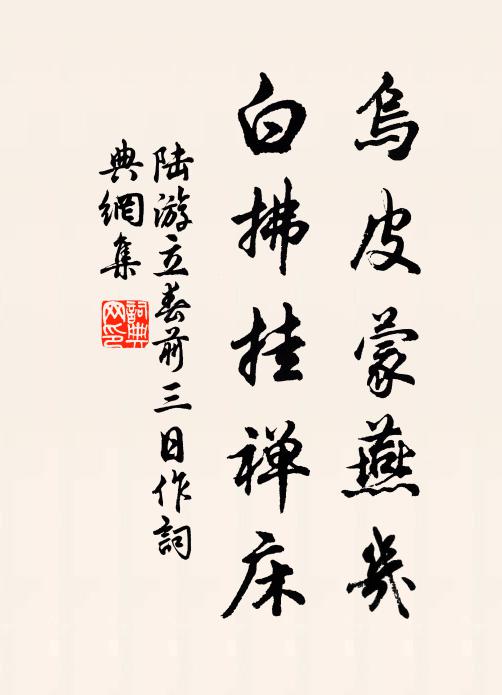 烏皮蒙燕几
白拂挂禅床
陆游立春前三日作词
典網集
詞典
网印